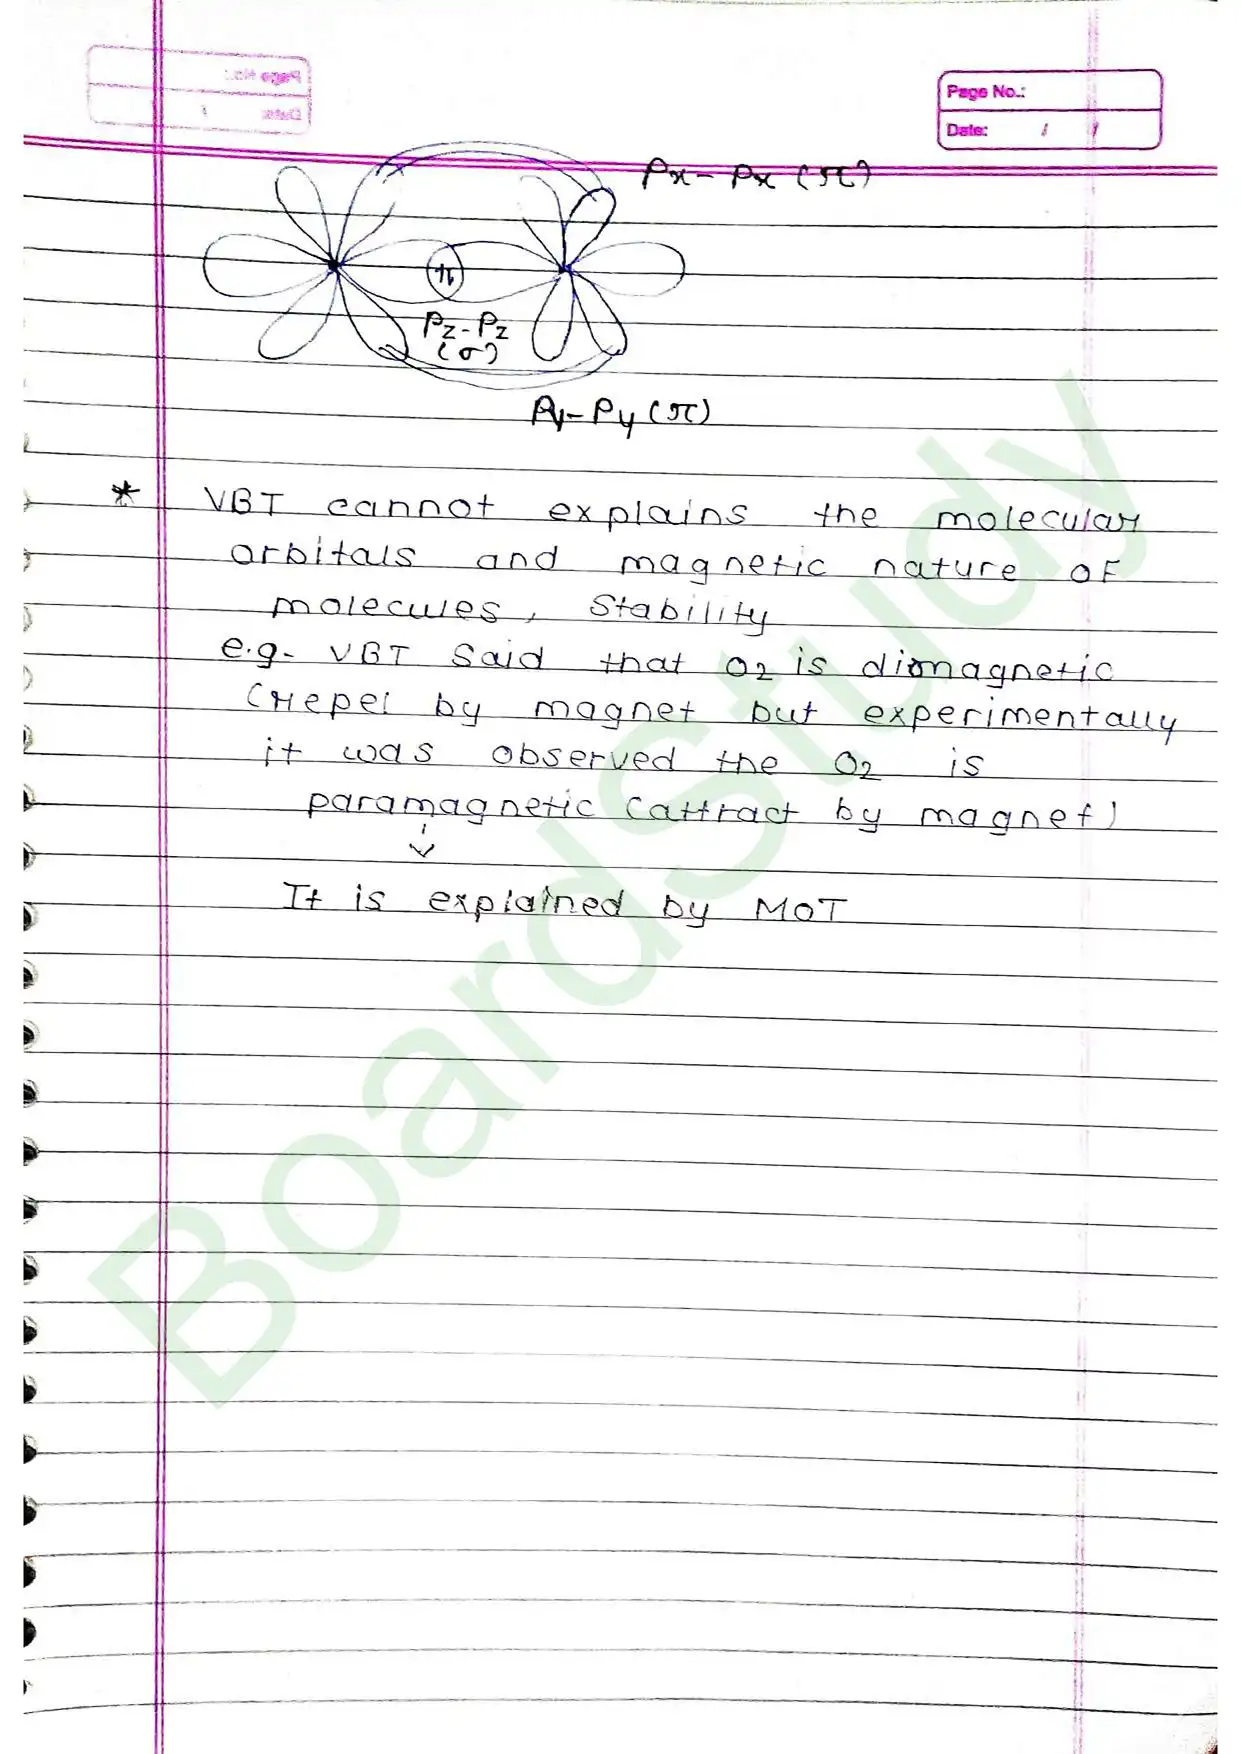 Page No.:
Date: / /
Px - Px (π)
Pz - Pz
(σ)
Py - Py (π)
* VBT cannot explains the molecular
orbitals and magnetic nature of
molecules, Stability
e.g- VBT Said that O2 is diamagnetic
(repel by magnet but experimentally
it was observed the O2 is
paramagnetic (attract by magnet)
It is explained by MOT
BoardStudy